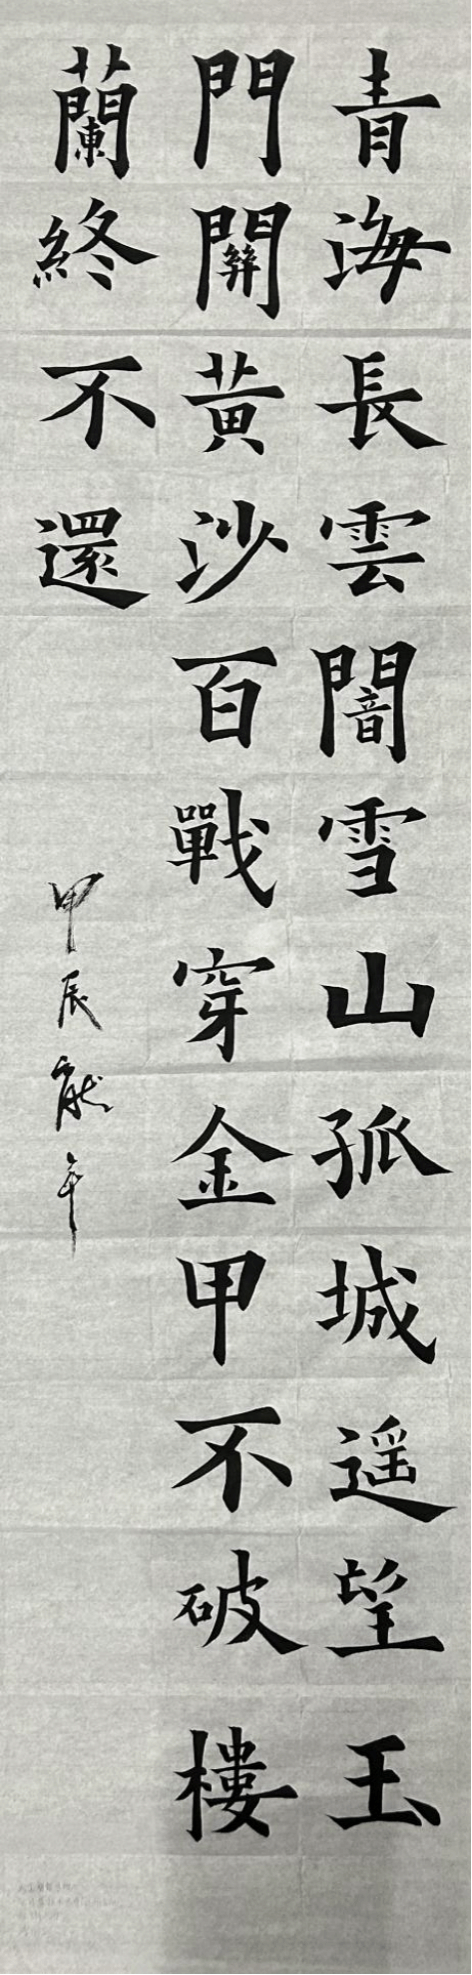 青海長雲闇雪山孤城遥望玉
門關黃沙百戰穿金甲不破樓
蘭終不還
甲辰龍年